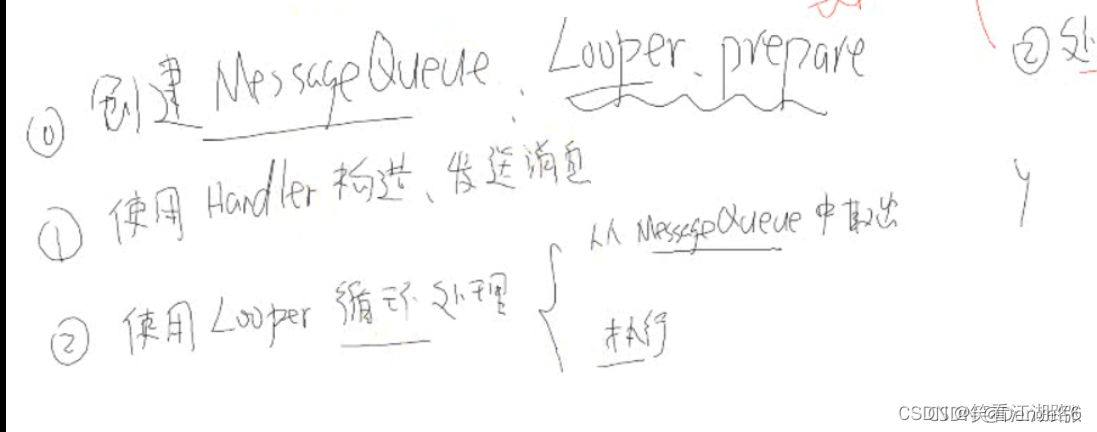 ⓪ 创建 MessageQueue、Looper.prepare
② 处
① 使用 Handler 构造、发送消息
② 使用 Looper 循环处理
从 MessageQueue 中取出
执行